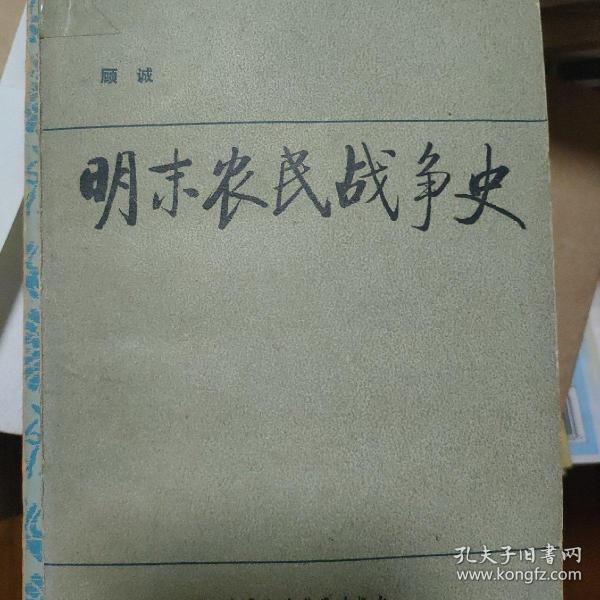 顾 诚
明末农民战争史
孔夫子旧书网
www.kongfz.com